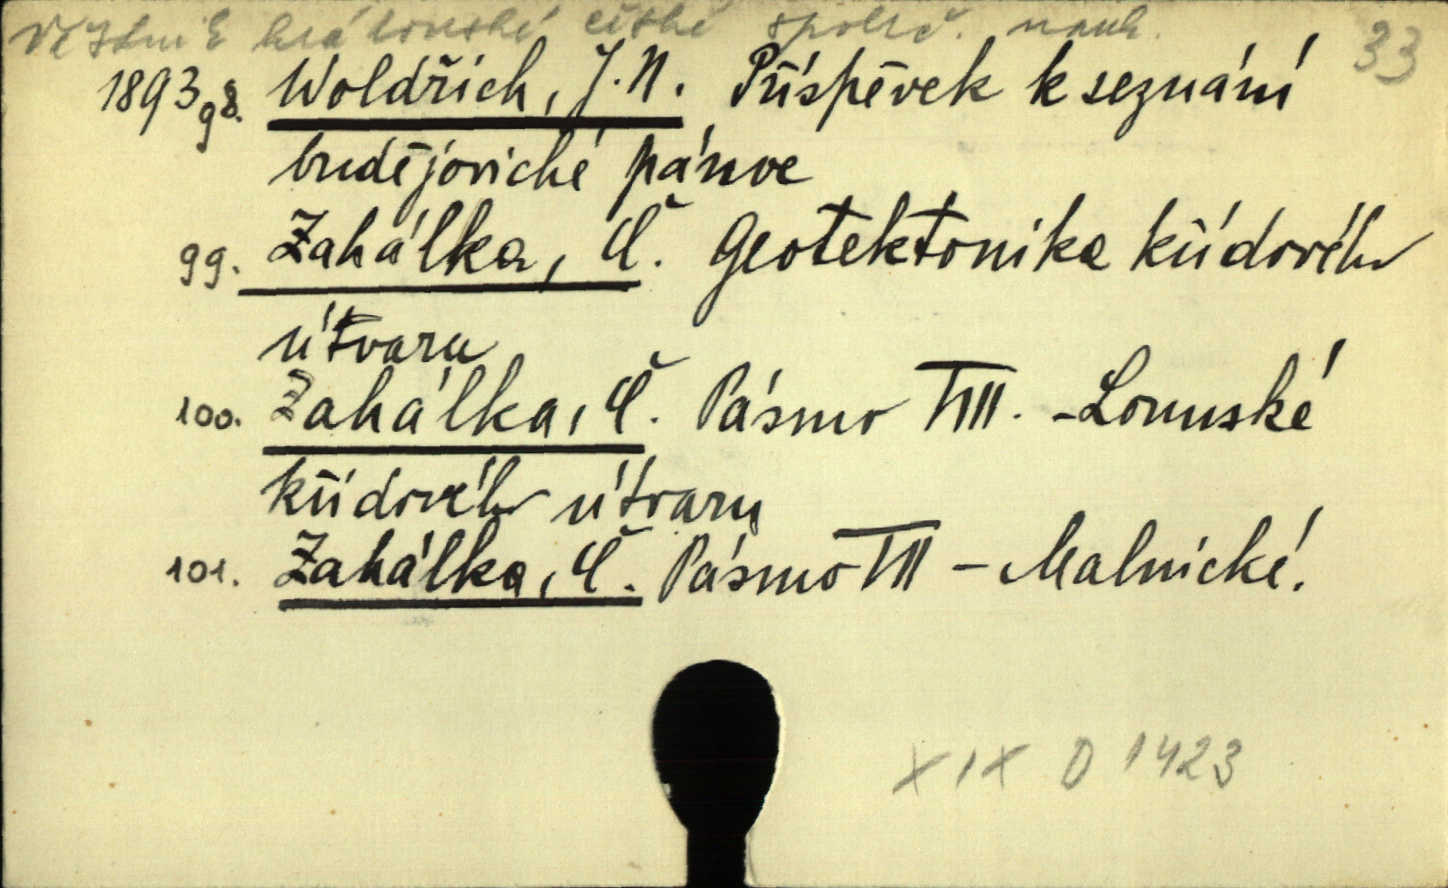 Věstník královské české společ. nauk. 33
1893 98. Woldřich, J. N. Příspěvek k seznání
budějovické pánve
99. Zahálka, Č. Geotektonika křídového
útvaru
100. Zahálka, Č. Pásmo VIII. - Lounské
křídového útvaru
101. Zahálka, Č. Pásmo III - Malnické.
XIX D 1423